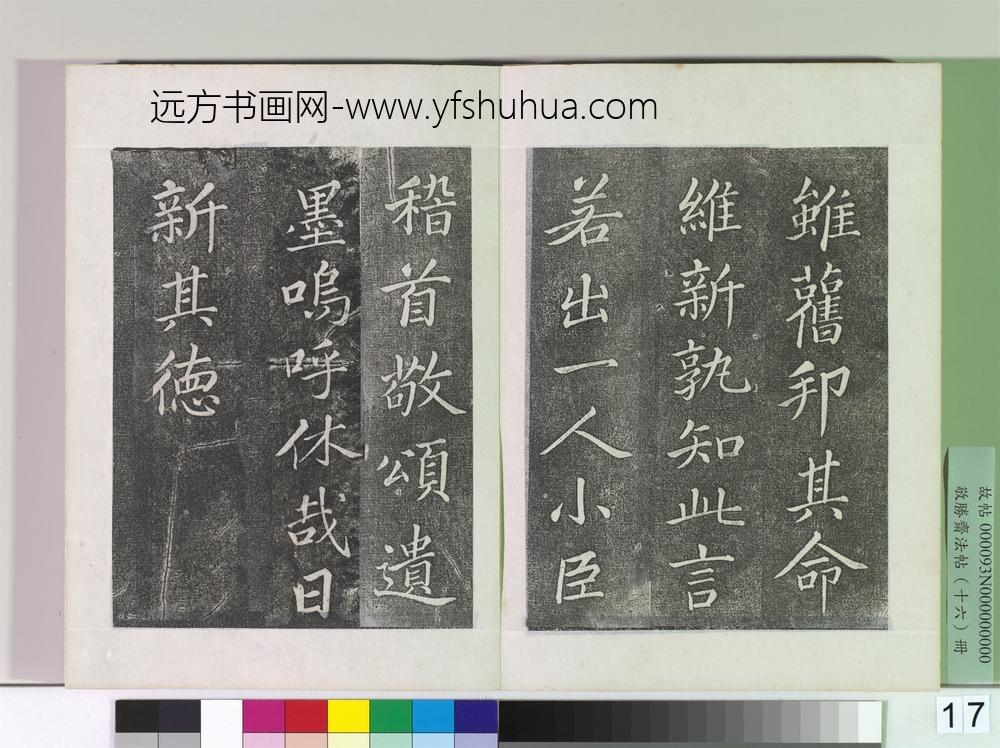 远方书画网-www.yfshuhua.com
雖舊邦其命
維新孰知此言
若出一人小臣
稽首敬頌遺
墨嗚呼休哉日
新其德
故帖 000093N000000000
敬勝齋法帖（十六）冊
17